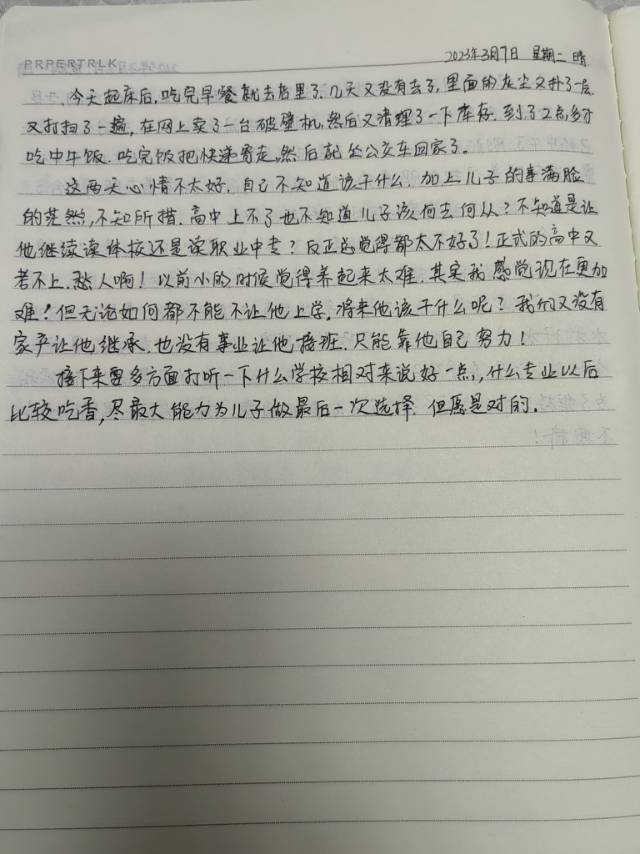 PRPERTRLK
2023年3月7日 星期二 晴
今天起床后,吃完早餐就去店里了.几天又没有去了,里面的灰尘又扑了一层
又打扫了一遍,在网上卖了一台破壁机,然后又清理了一下库存.到了2点多才
吃中午饭.吃完饭把快递寄走,然后就坐公交车回家了.
这两天心情不太好.自己不知道该干什么.加上儿子的事满脸
的茫然,不知所措.高中上不了也不知道儿子该何去何从?不知道是让
他继续读体校还是读职业中专?反正总觉得都太不好了!正式的高中又
考不上.愁人啊!以前小的时候觉得养起来太难.其实我感觉现在更加
难!但无论如何都不能不让他上学.将来他该干什么呢?我们又没有
家产让他继承.也没有事业让他接班.只能靠他自己努力!
接下来要多方面打听一下什么学校相对来说好一点,什么专业以后
比较吃香,尽最大能力为儿子做最后一次选择.但愿是对的.